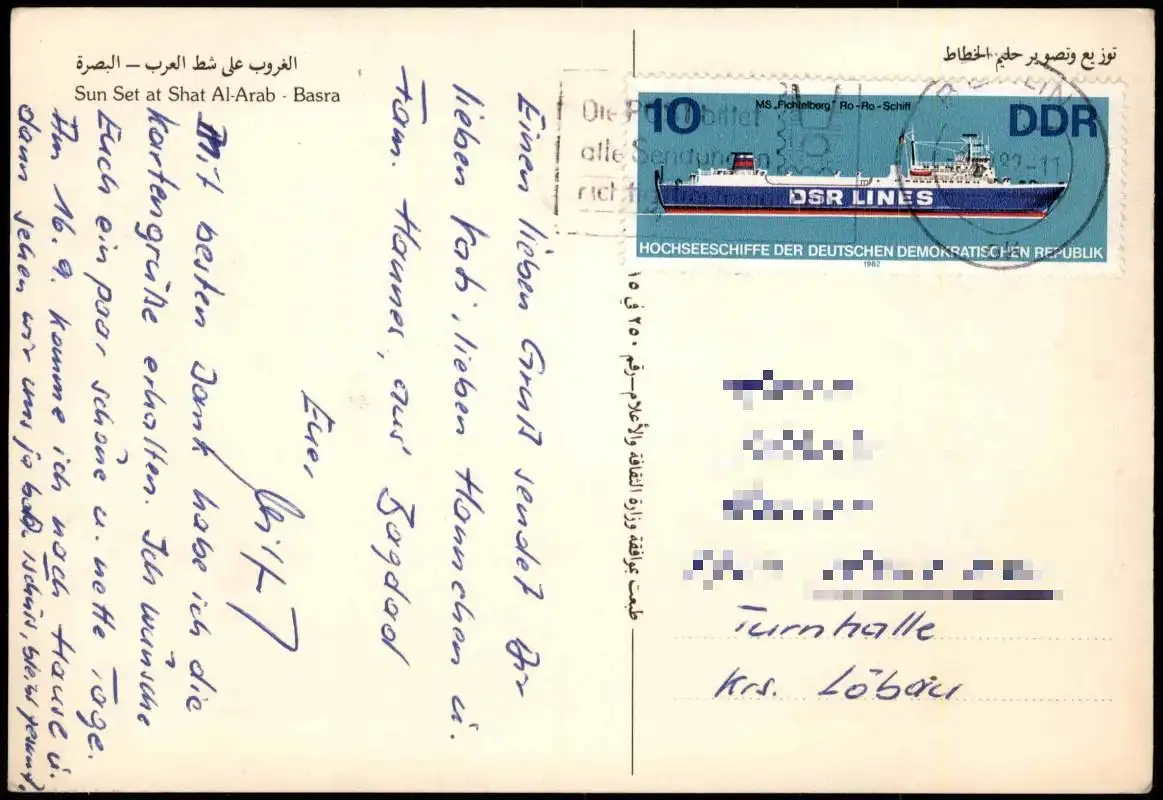 الغروب على شط العرب – البصرة
Sun Set at Shat Al-Arab - Basra
توزيع وتصوير حليم الخطاط
Die Post bittet
alle Sendungen
richtig
10
MS „Fichtelberg" Ro-Ro-Schiff
DDR
DSR LINES
HOCHSEESCHIFFE DER DEUTSCHEN DEMOKRATISCHEN REPUBLIK
1982
BERLIN
82-11
Einen lieben Gruß sendet Dir
lieben Kati, lieben Hannchen u.
Fam. Hannes, aus Bagdad
Euer,
Mit besten Dank habe ich die
Kartengrüße erhalten. Ich wünsche
Euch ein paar schöne u. nette Tage.
Am 16.9. komme ich nach Hause u.
dann sehen wir uns ja bald. Tschüß, bleibt gesund.
طبعت بموافقة وزارة الثقافة والأعلام–رقم ٢٥٠ في ١٥
Turnhalle
Krs. Löbau